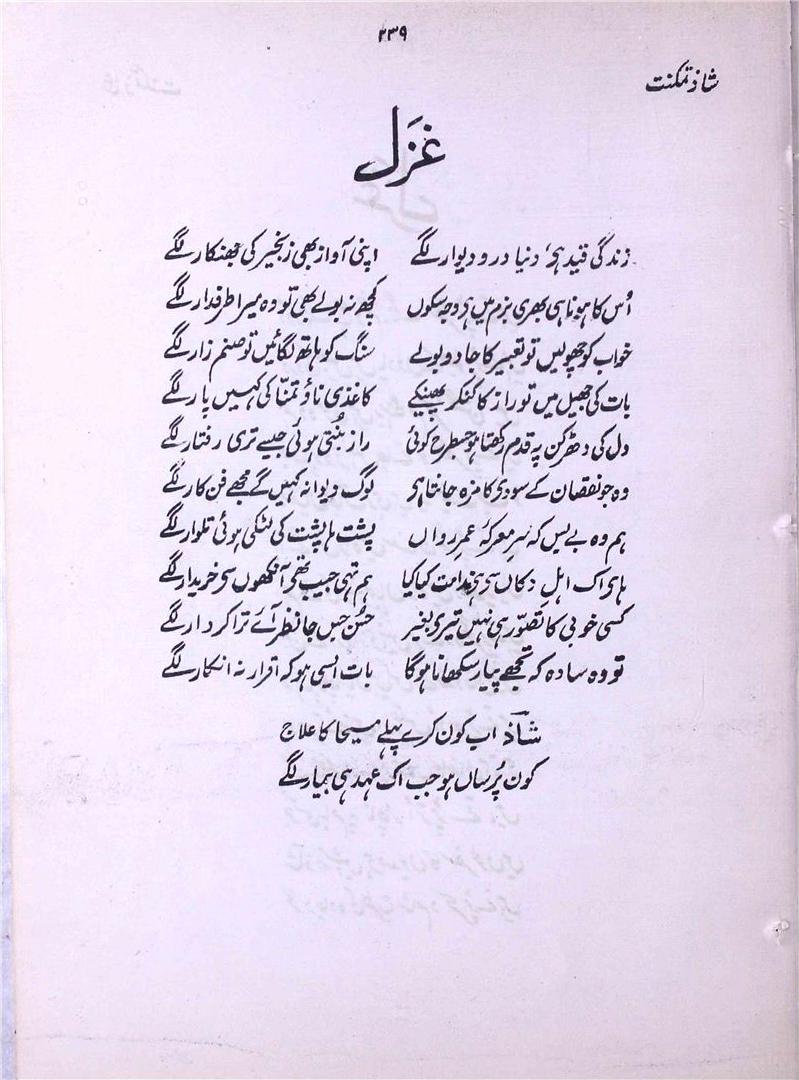 ۲۳۹
شاذ تمکنت
غزل
زندگی قید ہے، دنیا در و دیوار لگے اپنی آواز بھی زنجیر کی جھنکار لگے
اُس کا ہونا ہی بھری بزم میں ہے وجہ سکوں کچھ نہ بولے بھی تو وہ میرا طرفدار لگے
خواب کو چھولیں تو تعبیر کا جادو بولے سنگ کو ہاتھ لگائیں تو صنم زار لگے
بات کی جھیل میں تو راز کا کنکر پھینکے کاغذی ناؤ تمنّا کی کہیں پار لگے
دل کی دھڑکن پہ قدم رکھتا ہو جسطرح کوئی راز بُنتی ہوئی جیسے تری رفتار لگے
وہ جو نقصان کے سودے کا مزہ جانتا ہے لوگ دیوانہ کہیں گے مجھے فن کار لگے
ہم وہ بے بس کہ سرِ معرکۂ عمرِ رواں پشت ہا پشت کی لٹکی ہوئی تلوار لگے
ہائے اک اہلِ دکاں سے ہے ندامت کیا کیا ہم تہی جیب تھے آنکھوں سے خریدار لگے
کسی خوبی کا تصوّر ہی نہیں تیرے بغیر حسُن جس جا نظر آئے ترا کردار لگے
تو وہ سادہ کہ تجھے پیار سکھانا ہوگا بات ایسی ہو کہ اقرار نہ انکار لگے
شاذؔ اب کون کرے پہلے مسیحا کا علاج
کون پُرساں ہو جب اک عہد ہی بیمار لگے